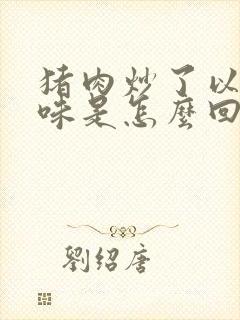 猪肉炒了以
味是怎麼回
劉紹唐